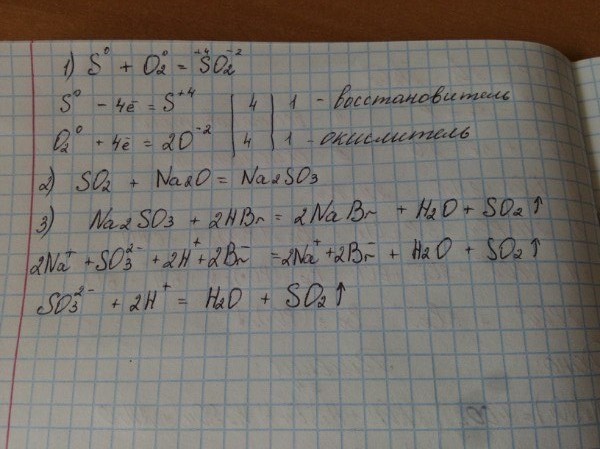 1) S⁰ + O₂⁰ = S⁺⁴O₂⁻²
S⁰ - 4ē = S⁺⁴ | 4 | 1 - восстановитель
O₂⁰ + 4ē = 2O⁻² | 4 | 1 - окислитель
2) SO₂ + Na₂O = Na₂SO₃
3) Na₂SO₃ + 2HBr = 2NaBr + H₂O + SO₂↑
2Na⁺ + SO₃²⁻ + 2H⁺ + 2Br⁻ = 2Na⁺ + 2Br⁻ + H₂O + SO₂↑
SO₃²⁻ + 2H⁺ = H₂O + SO₂↑